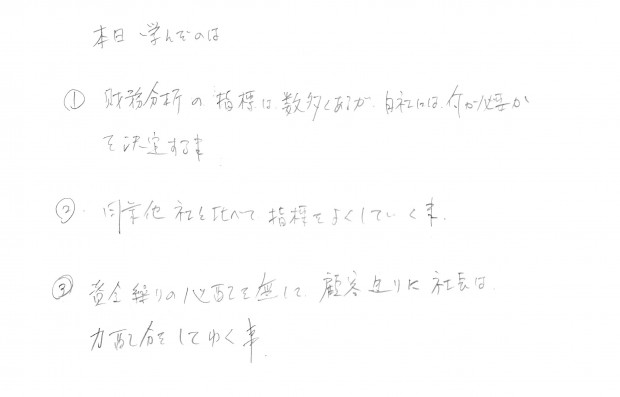 本日 学んだのは
① 財務分析の指標は、数多くあるが、自社には、何が必要か
を決定する事
② 同業他社と比べて指標をよくしていく事。
③ 資金繰りの心配を無して、顧客造りに社長は、
力配分をしてゆく事。